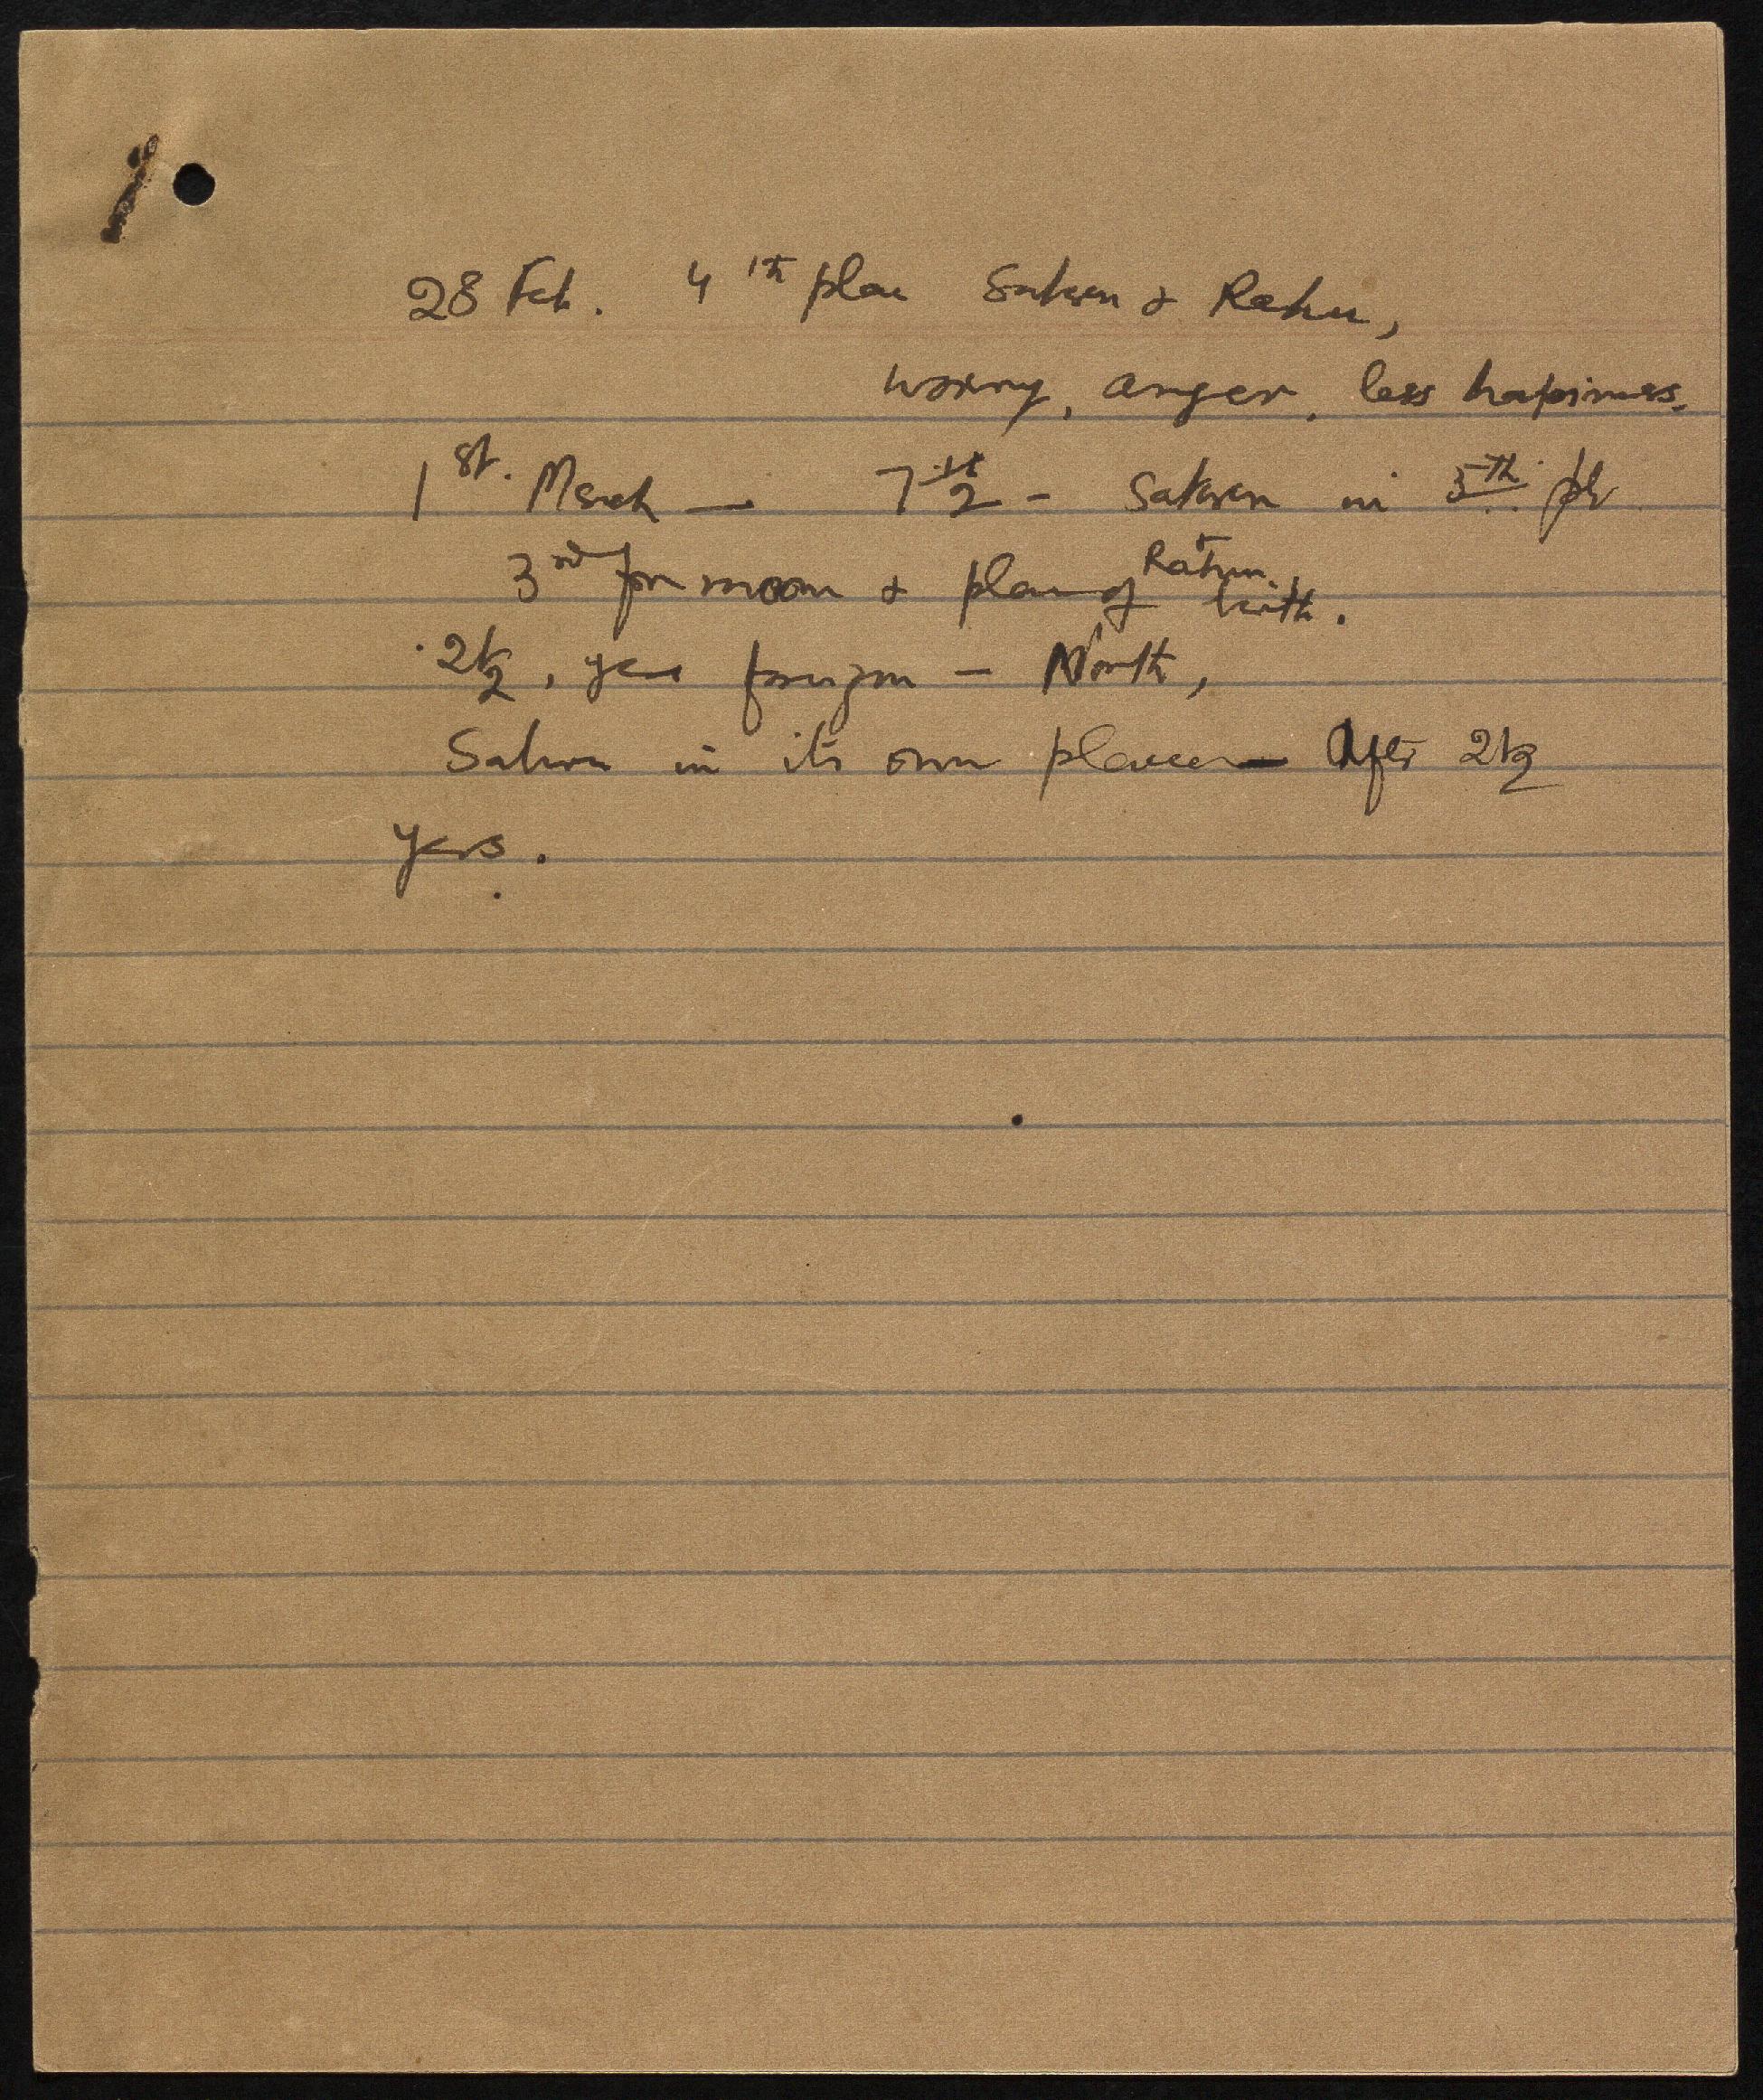 28 Feb. 4th place Saturn & Rahu,
worry, anger, less happiness.
1st. March — 7 1/2 - Saturn in 5th pl
3rd for moon & place of Rahu with.
2 1/2, year foreign — North,
Saturn in its own place — After 2 1/2
years.